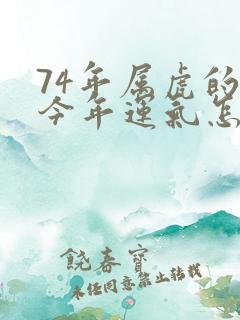 74年属虎的
今年运气怎
饶春宝
未经同意禁止转载